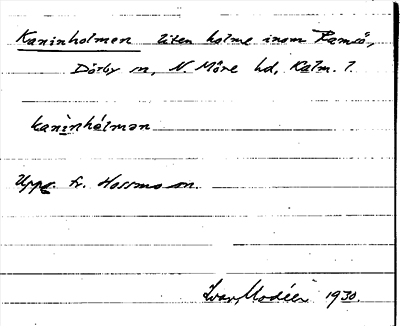 Kaninholmen liten holme inom Ramsö,
Dörby sn, N. Möre hd, Kalm. l.
kanìnhólmən
Uppg. fr. Hossmo sn.
Ivar Modéer 1930.